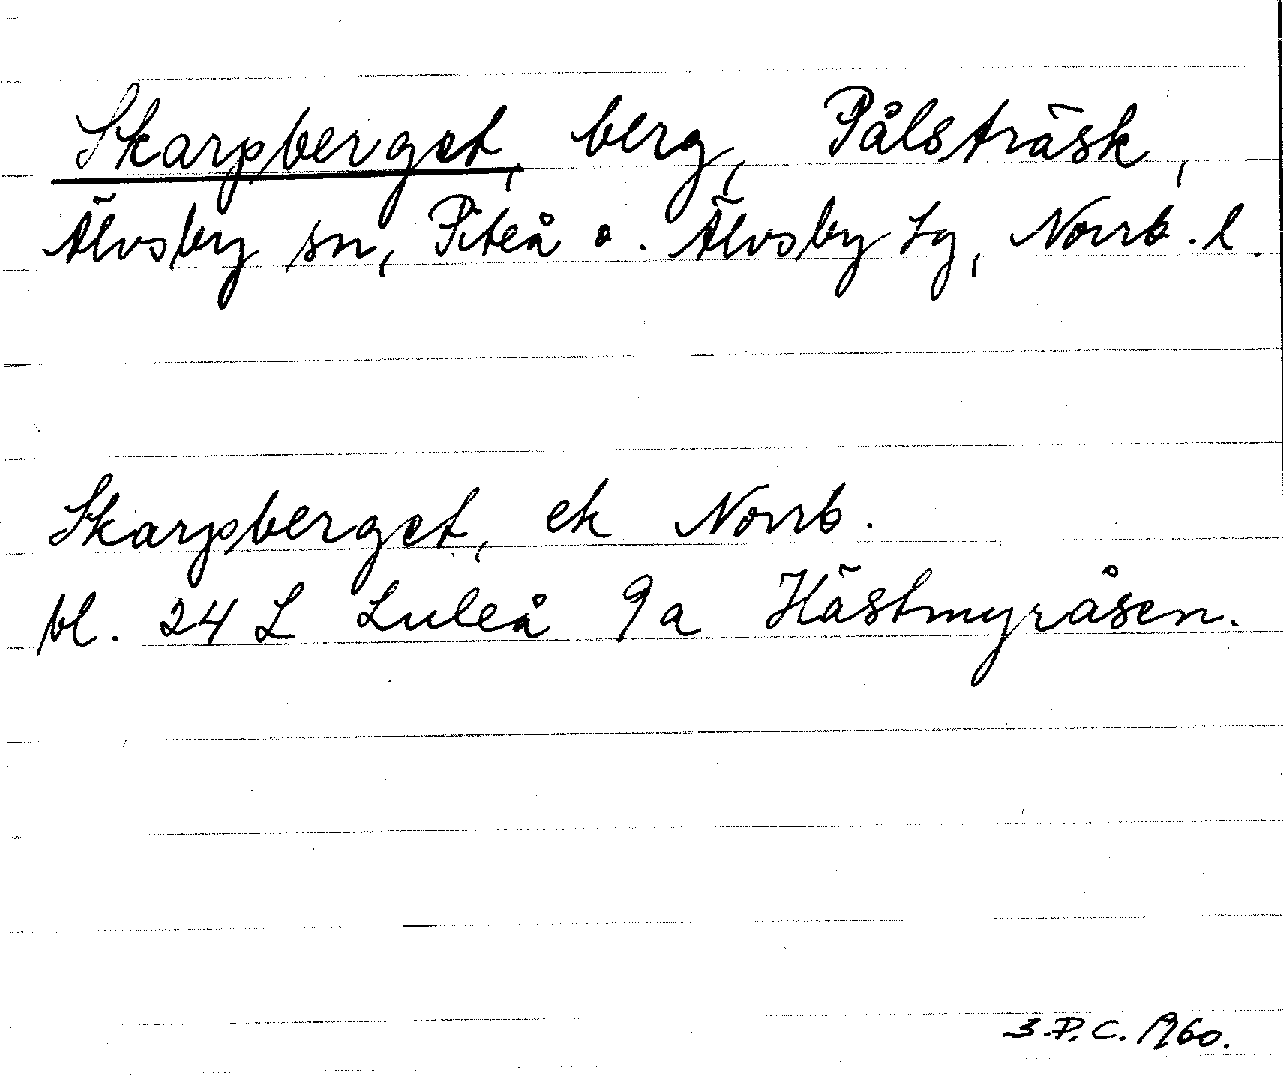 Skarpberget, berg, Pålsträsk,
Älvsby sn, Piteå o. Älvsby tg, Norrb. l.
Skarpberget, ek Norrb.
bl. 24 L Luleå 9a Hästmyråsen.
B.P.C. 1960.